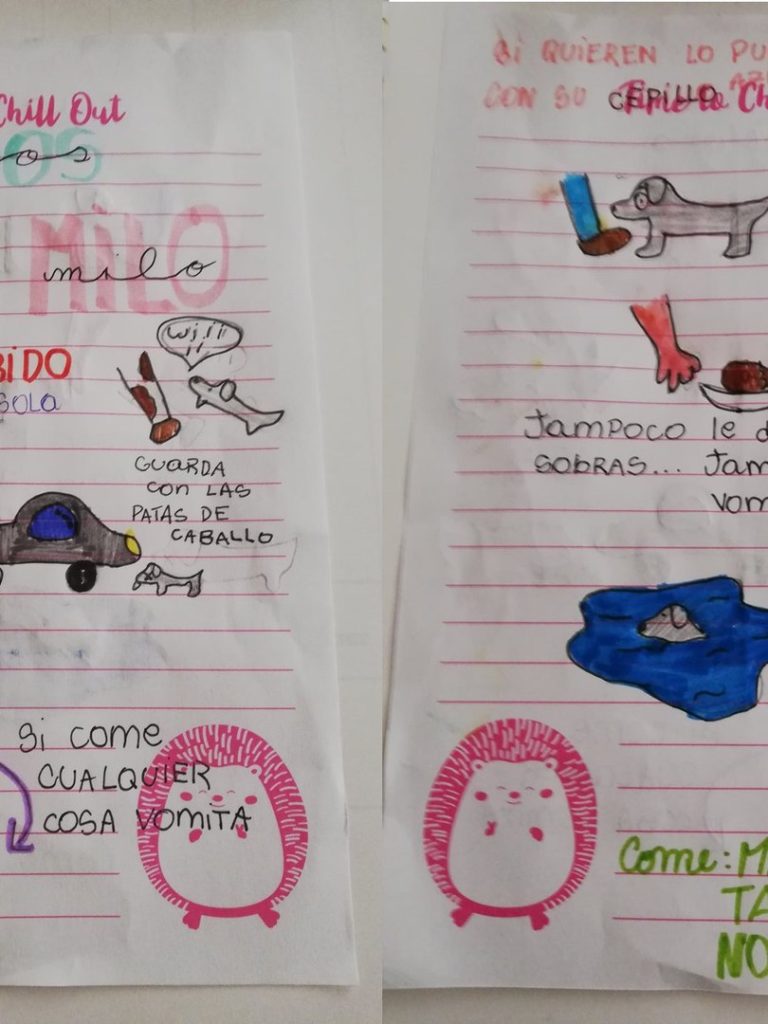 Chill Out
OS
os
MiLO
milo
BIDO
SOLA
wiiii
GUARDA
CON LAS
PATAS DE
CABALLO
Si COMe
CUALQUIER
COSA VOMITA
Si QUIEREN LO PU
CON SU CEPILLO AZ
Time to Ch
TAMPOCO le d
SOBRAS... TAM
VOM
Come: MA
TA
NO